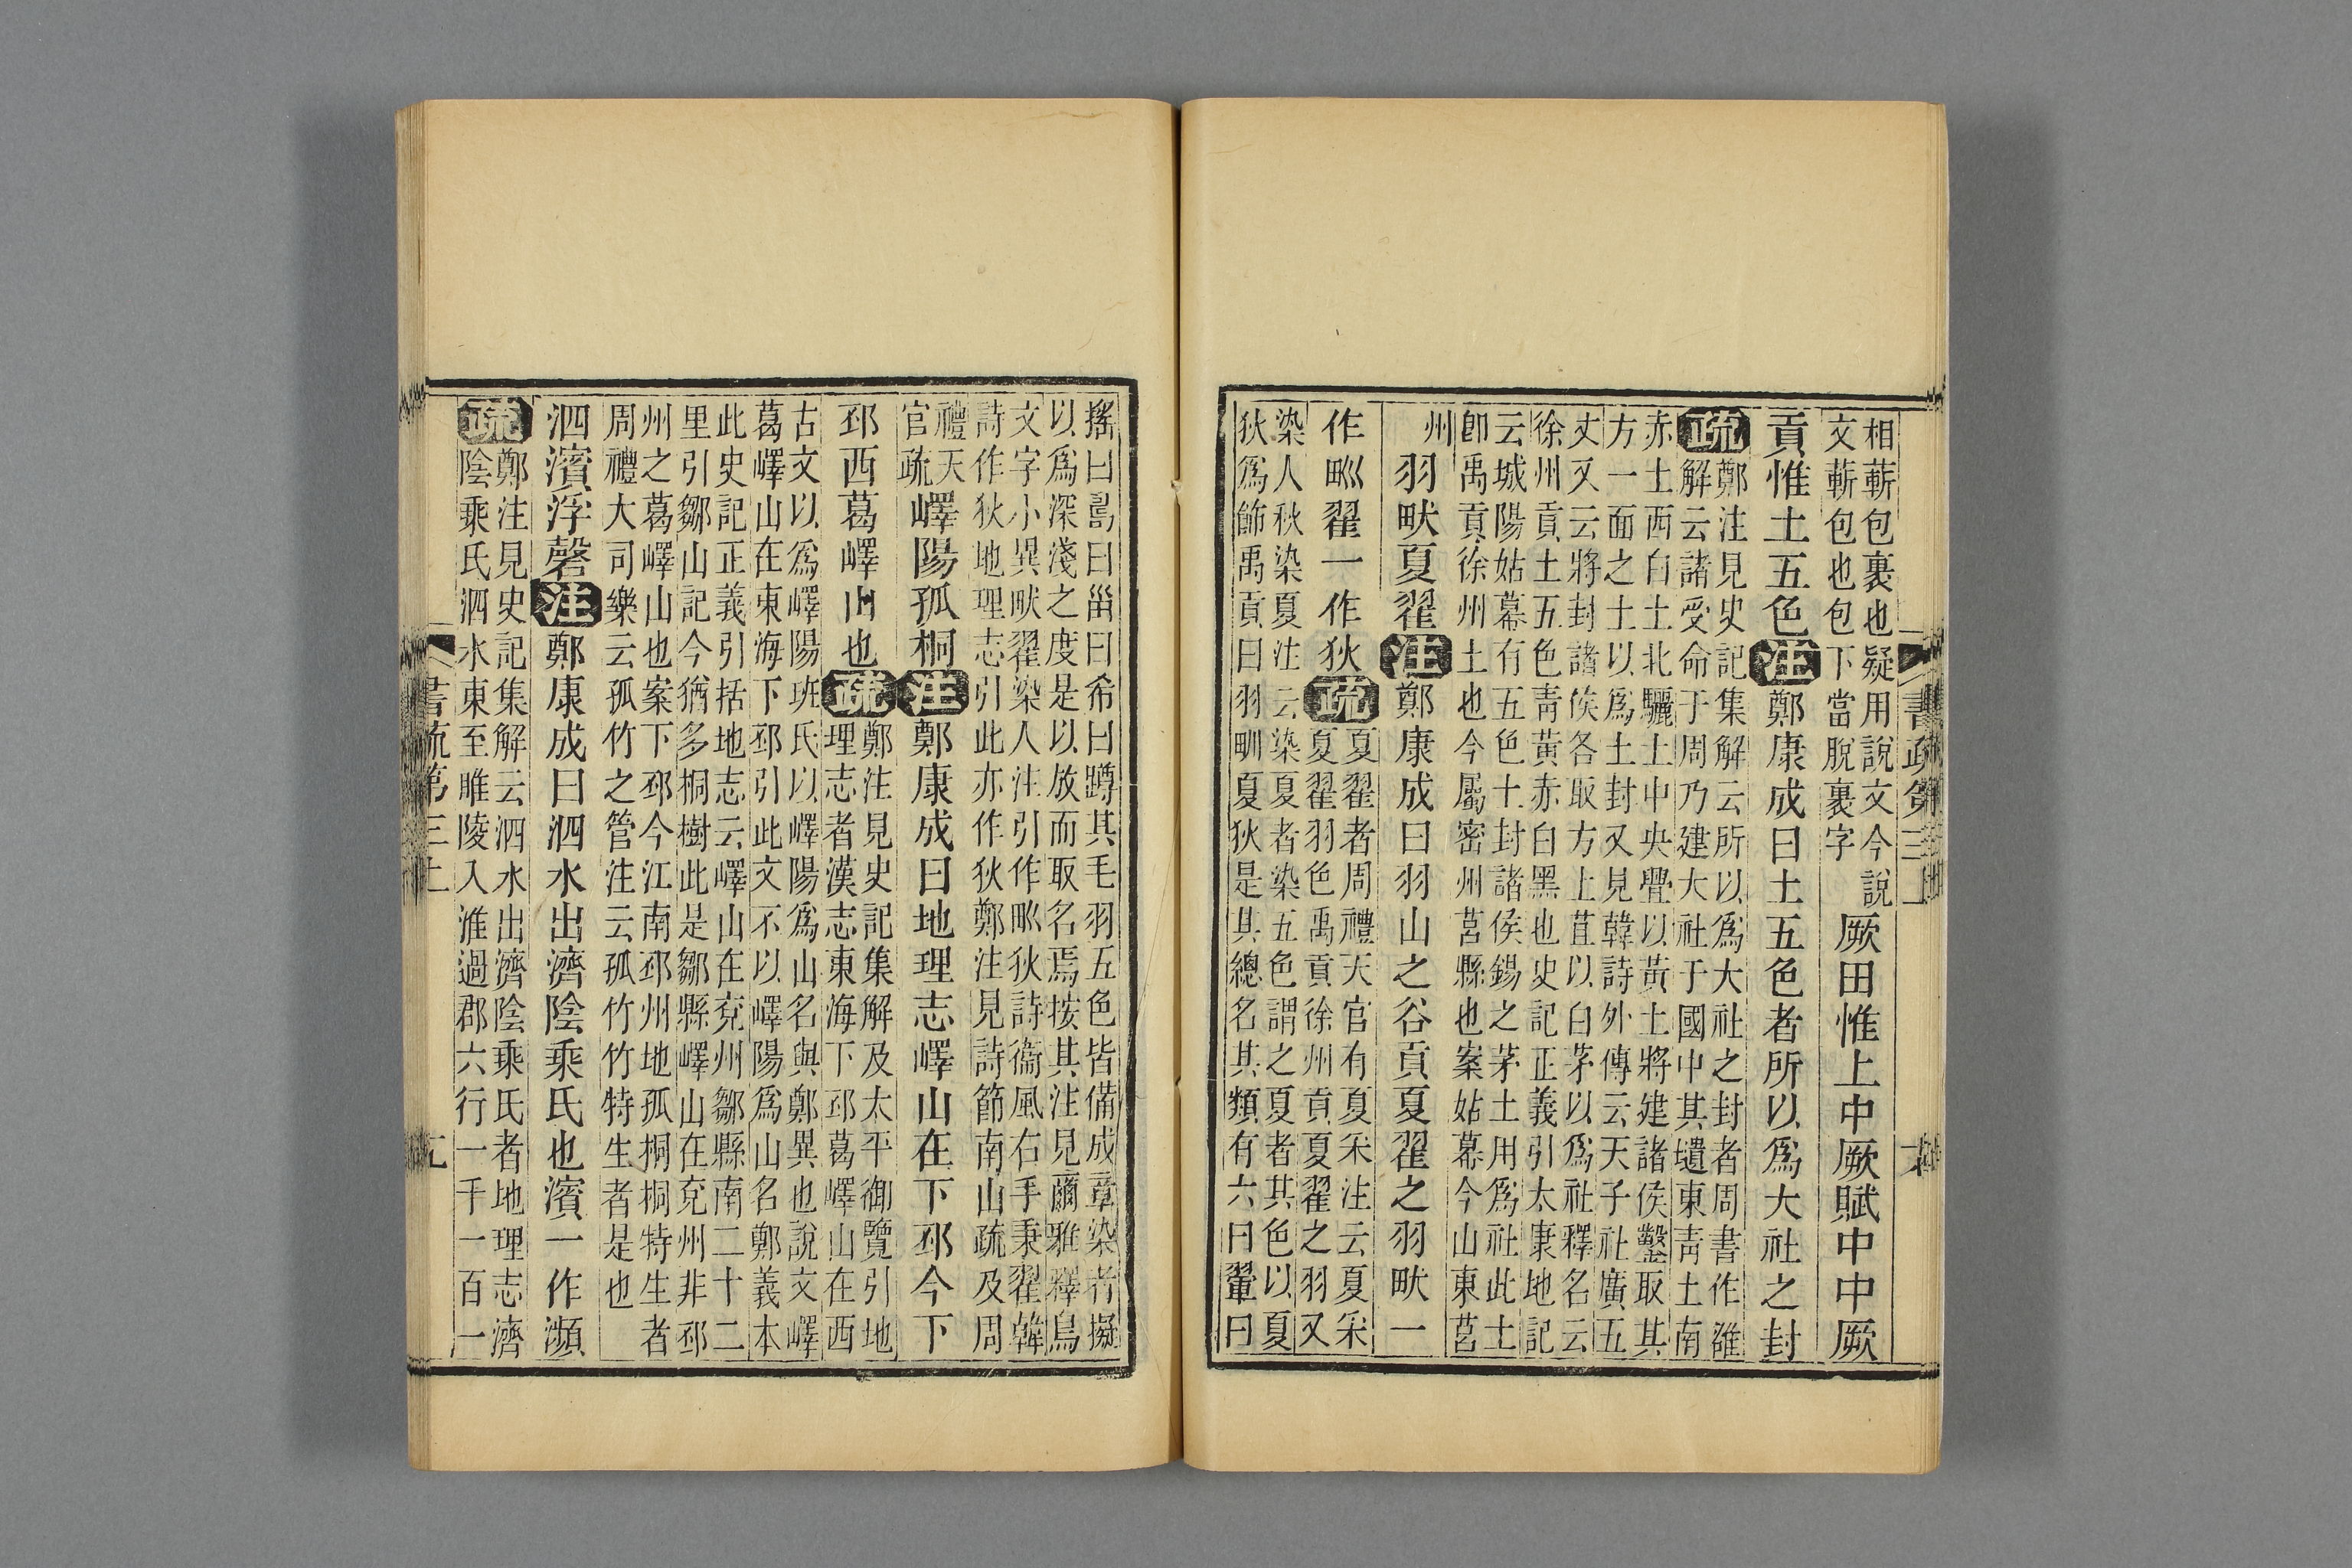 相蘄包裹也疑用說文今說
文蘄包也包下當脫裹字
厥田惟上中厥賦中中厥
貢惟土五色注鄭康成曰土五色者所以爲大社之封
疏
鄭注見史記集解云所以爲大社之封者周書作雒
解云諸受命于周乃建大社于國中其壝東靑土南
赤土西白土北驪土中央疊以黃土將建諸侯鑿取其
方一面之土以爲土封又見韓詩外傳云天子社廣五
丈又云將封諸侯各取方上苴以白茅以爲社釋名云
徐州貢土五色靑黃赤白黑也史記正義引太康地記
云城陽姑幕有五色土封諸侯錫之茅土用爲社此土
卽禹貢徐州土也今屬密州莒縣也案姑幕今山東莒
州
羽畎夏翟注鄭康成曰羽山之谷貢夏翟之羽畎一
作甽翟一作狄疏
夏翟者周禮天官有夏采注云夏采
夏翟羽色禹貢徐州貢夏翟之羽又
染人秋染夏注云染夏者染五色謂之夏者其色以夏
狄爲飾禹貢曰羽甽夏狄是其總名其類有六曰翬曰
搖曰䎘曰甾曰希曰蹲其毛羽五色皆備成章染者擬
以爲深淺之度是以放而取名焉按其注見爾雅釋鳥
文字小異畎翟染人注引作甽狄詩衞風右手秉翟韓
詩作狄地理志引此亦作狄鄭注見詩節南山疏及周
禮天
官疏
嶧陽孤桐注鄭康成曰地理志嶧山在下邳今下
邳西葛嶧山也疏
鄭注見史記集解及太平御覽引地
理志者漢志東海下邳葛嶧山在西
古文以爲嶧陽班氏以嶧陽爲山名與鄭異也說文嶧
葛嶧山在東海下邳引此文不以嶧陽爲山名鄭義本
此史記正義引括地志云嶧山在兗州鄒縣南二十二
里引鄒山記今猶多桐樹此是鄒縣嶧山在兗州非邳
州之葛嶧山也案下邳今江南邳州地孤桐桐特生者
周禮大司樂云孤竹之管注云孤竹竹特生者是也
泗濱浮磬注鄭康成曰泗水出濟陰乘氏也濱一作瀕
疏
鄭注見史記集解云泗水出濟陰乘氏者地理志濟
陰乘氏泗水東至睢陵入淮過郡六行一千一百一
書疏第三上
書疏第三上